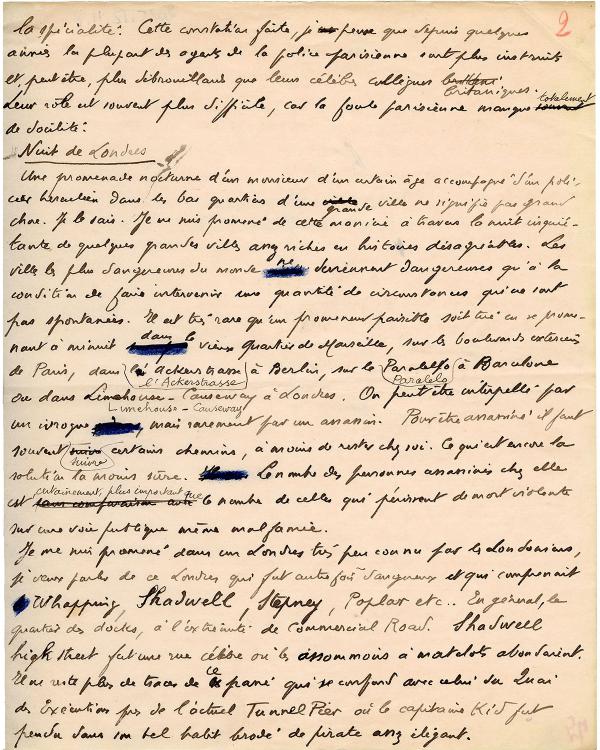 2
la spécialité. Cette constatation faite, je pense que depuis quelques
années la plupart des agents de la police parisienne sont plus instruits
et, peut être, plus débrouillards que leurs célèbres collègues britaniques.
Leur rôle est souvent plus difficile, car la foule parisienne manque totalement
de docilité.
Nuit de Londres
Une promenade nocturne d'un monsieur d'un certain âge accompagné d'un poli-
cier herculéen dans les bas quartiers d'une grande ville ne signifie pas grand
chose. Je le sais. Je me suis promené de cette manière à travers la nuit inquié-
tante de quelques grandes villes assez riches en histoires désagréables. Les
villes les plus dangereuses du monde ne deviennent dangereuses qu'à la
condition de faire intervenir une quantité de circonstances qui ne sont
pas spontanées. Il est très rare qu'un promeneur paisible soit tué en se prome-
nant à minuit dans le vieux quartier de Marseille, sur les boulevards extérieurs
de Paris, dans l'Ackerstrasse à Berlin, sur le Paralelo à Barcelone
l'Ackerstrasse Paralelo
ou dans Limehouse-Causeway à Londres. On peut être interpellé par
Limehouse-Causeway
un ivrogne, mais rarement par un assassin. Pour être assassiné il faut
souvent suivre certains chemins, à moins de rester chez soi. Ce qui est encore la
solution la moins sûre. Le nombre des personnes assassinées chez elle
est certainement plus important que le nombre de celles qui périssent de mort violente
sur une voie publique même mal famée.
Je me suis promené dans un Londres très peu connu par les Londoniens,
je veux parler de ce Londres qui fut autrefois dangereux et qui comprenait
Whapping, Shadwell, Stepney, Poplar etc.. En général, le
quartier des docks, à l'extrémité de Commercial Road. Shadwell
high street fut une rue célèbre où les assommoirs à matelots abondaient.
Il ne reste plus de traces de ce passé qui se confond avec celui du Quai
des Exécutions près de l'actuel Tunnel Pier où le capitaine Kid fut
pendu dans son bel habit brodé de pirate assez élégant.